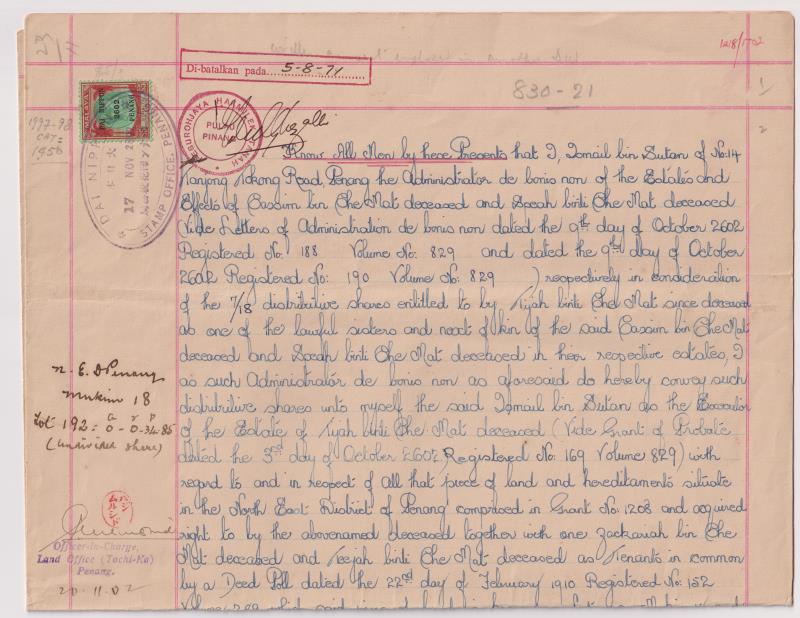 23/11
1218/1702
Di-batalkan pada 5-8-71
830-21
1
2
MALAYA
DAI NIPPON
2602
PENANG
1942-98
CAT:
1950
DAI NIPPON
17 NOV
STAMP OFFICE, PENANG
PULAU
PINANG
Know All Men by these Presents that I, Ismail bin Sutan of No: 14
Tanjong Tokong Road, Penang the Administrator de bonis non of the Estates and
Effects of Cassim bin Che Mat deceased and Socah binti Che Mat deceased
(Vide Letters of Administration de bonis non dated the 9th day of October 2602
Registered No: 188 Volume No: 829 and dated the 9th day of October
2602 Registered No: 190 Volume No: 829 ) respectively in consideration
of the 7/18 distributive shares entitled to by Tijah binti Che Mat since deceased
as one of the lawful sisters and next of kin of the said Cassim bin Che Mat
deceased and Socah binti Che Mat deceased in their respective estates, I
as such Administrator de bonis non as aforesaid do hereby convey such
distributive shares unto myself the said Ismail bin Sutan as the Executor
of the Estate of Tijah binti Che Mat deceased (Vide Grant of Probate
dated the 3rd day of October 2602 Registered No: 169 Volume 829) with
regard to and in respect of all that piece of land and hereditaments situate
in the North East District of Penang comprised in Grant No: 1208 and acquired
right to by the abovenamed deceased together with one Zackariah bin Che
Mat deceased and Teejah binti Che Mat deceased as Tenants in common
by a Deed Poll dated the 22nd day of February 1910 Registered No: 152
N. E. D Penang
Mukim 18
a r p
Lot 192 = 0-0-32.85
(undivided share)
Officer-in-Charge,
Land Office (Tochi-Ka)
Penang.
20.11.02